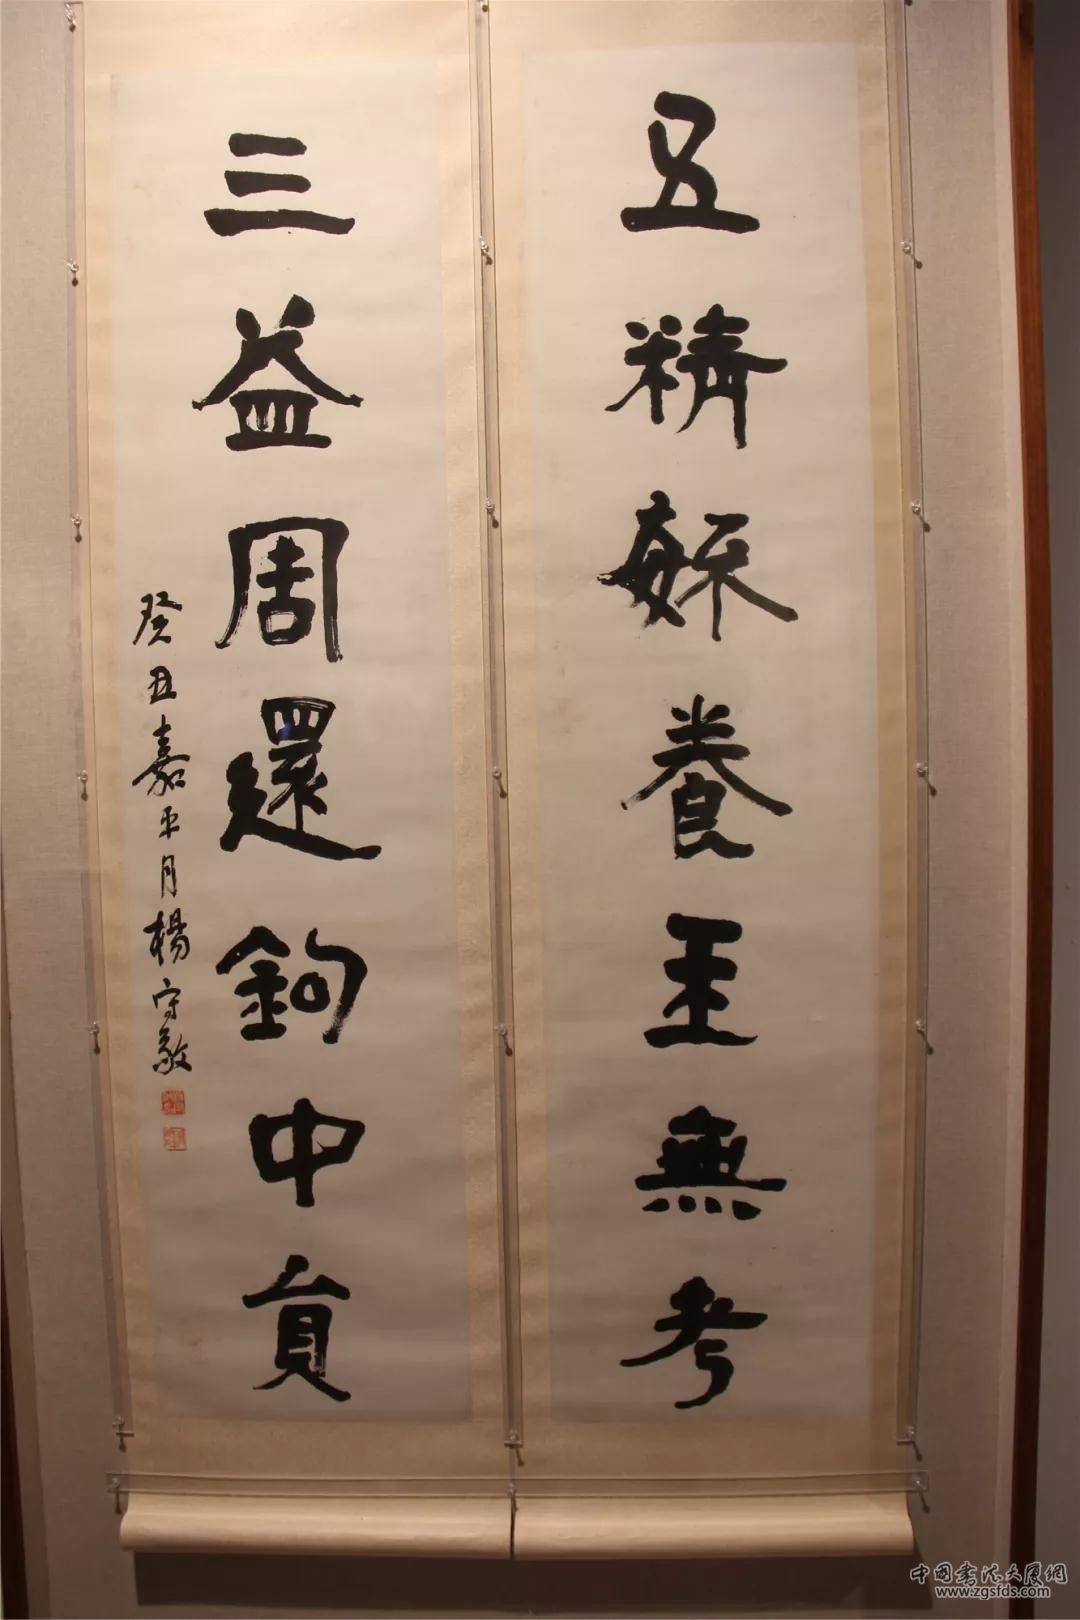 五精毓養玉無考
三益周還鉤中員
癸丑嘉平月楊守敬
中國書法大厦網
www.zgsfds.com